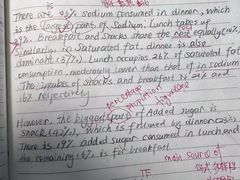 is
There are 43% sodium consumed in dinner, which
is the largest part of sodium. Lunch takes up
29%. Breakfast and snacks share the rest equally (14%).
Similarly, in saturated fat, dinner is also
dominant (37%). Lunch occupies 26% of saturated fat
consumption, moderately lower than that in sodium.
The intakes of snacks and breakfast is 21% and
16% respectively
percentage
proportion
figure
However, the biggest part of Added sugar is
snack (42%), which is followed by dinner (23%).
There is 19% added sugar consumed in lunch and
the remaining 16% is for breakfast.
main source of